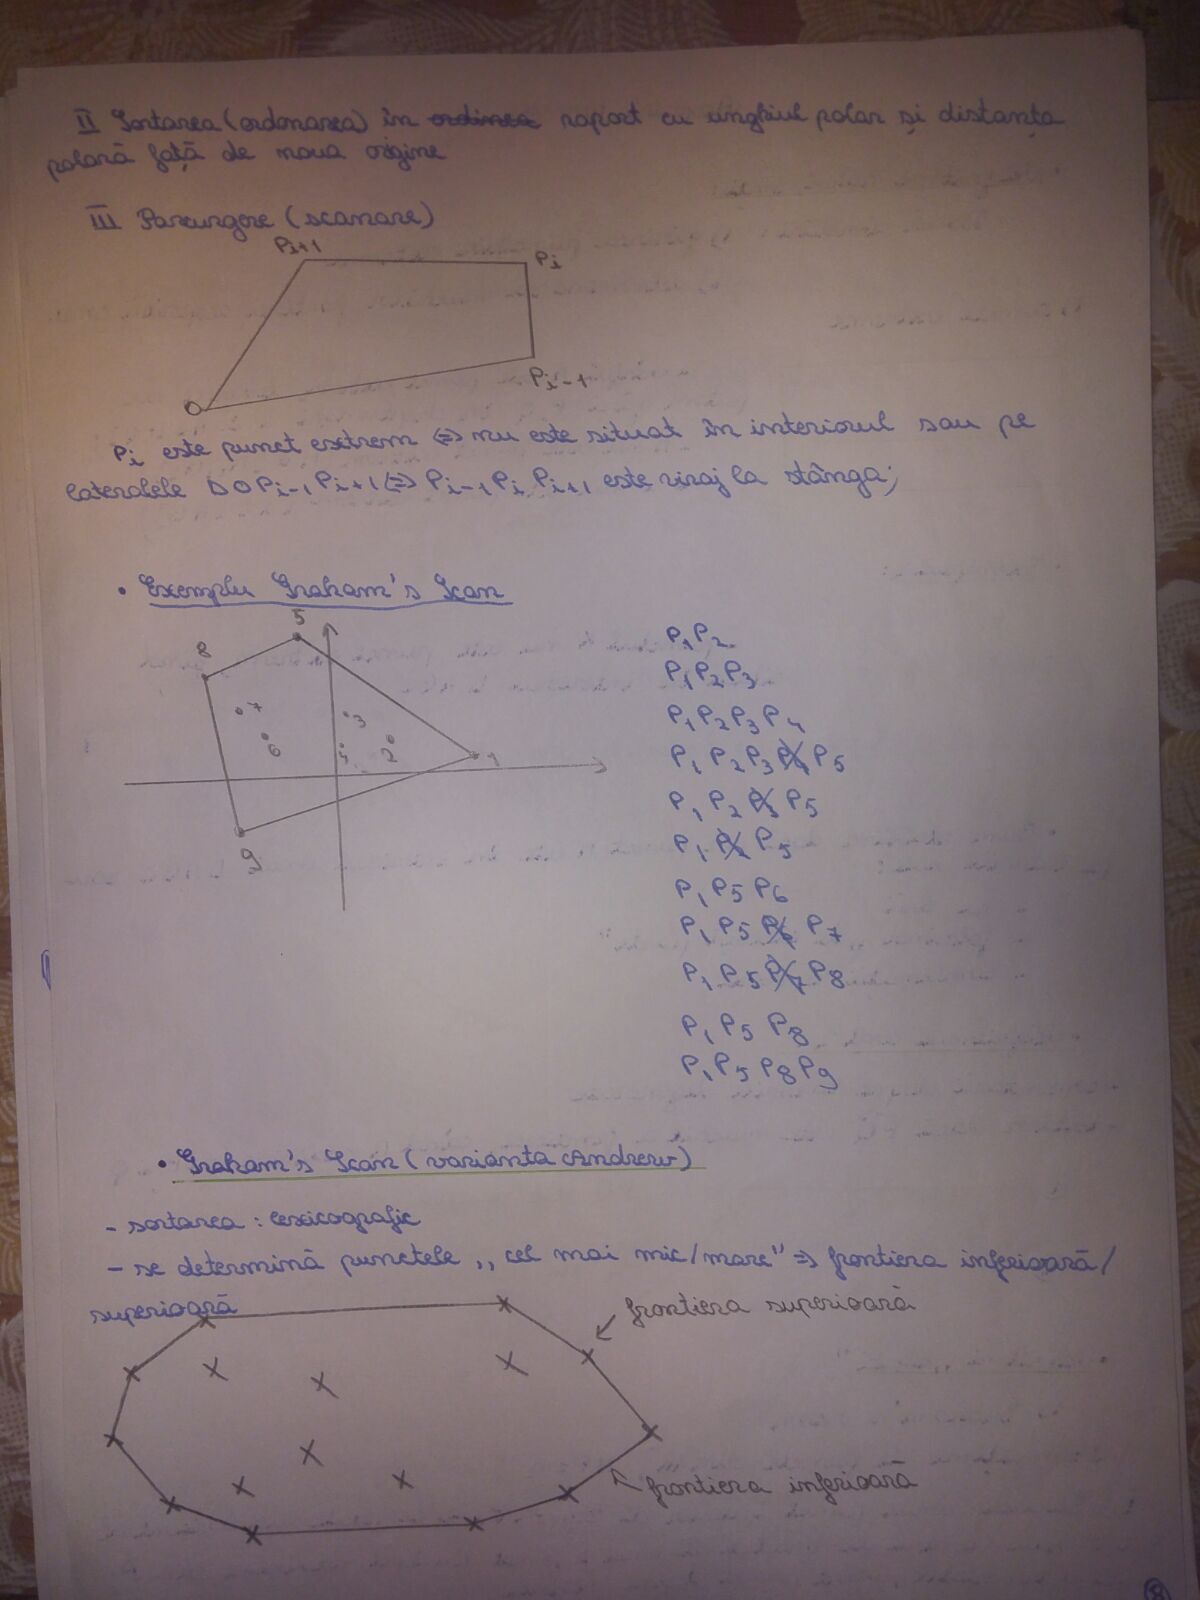 II Sortarea (ordonarea) în ordinea raport cu unghiul polar și distanța
polară față de noua origine
III Parcurgere (scanare)
Pi+1
Pi
Pi-1
O
Pi este punct extrem <=> nu este situat în interiorul sau pe
lateralele Δ O Pi-1 Pi+1 <=> Pi-1 Pi Pi+1 este viraj la stânga;
• Exemplu Graham's Scan
5
8
7
6
3
4
2
1
9
P1 P2
P1 P2 P3
P1 P2 P3 P4
P1 P2 P3 P4 P5
P1 P2 P3 P5
P1 P2 P5
P1 P5 P6
P1 P5 P6 P7
P1 P5 P7 P8
P1 P5 P8
P1 P5 P8 P9
• Graham's Scan (varianta Andrew)
- sortarea : lexicografic
- se determină punctele ,, cel mai mic/mare" => frontiera inferioară/
superioară
frontiera superioară
frontiera inferioară
8